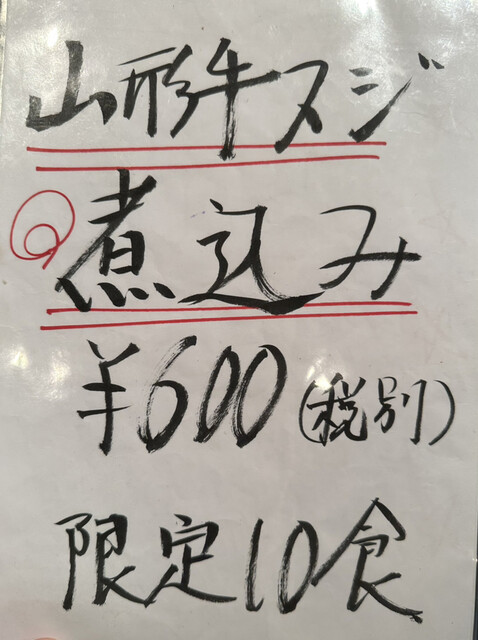 山形牛スジ
煮込み
¥600(税別)
限定10食